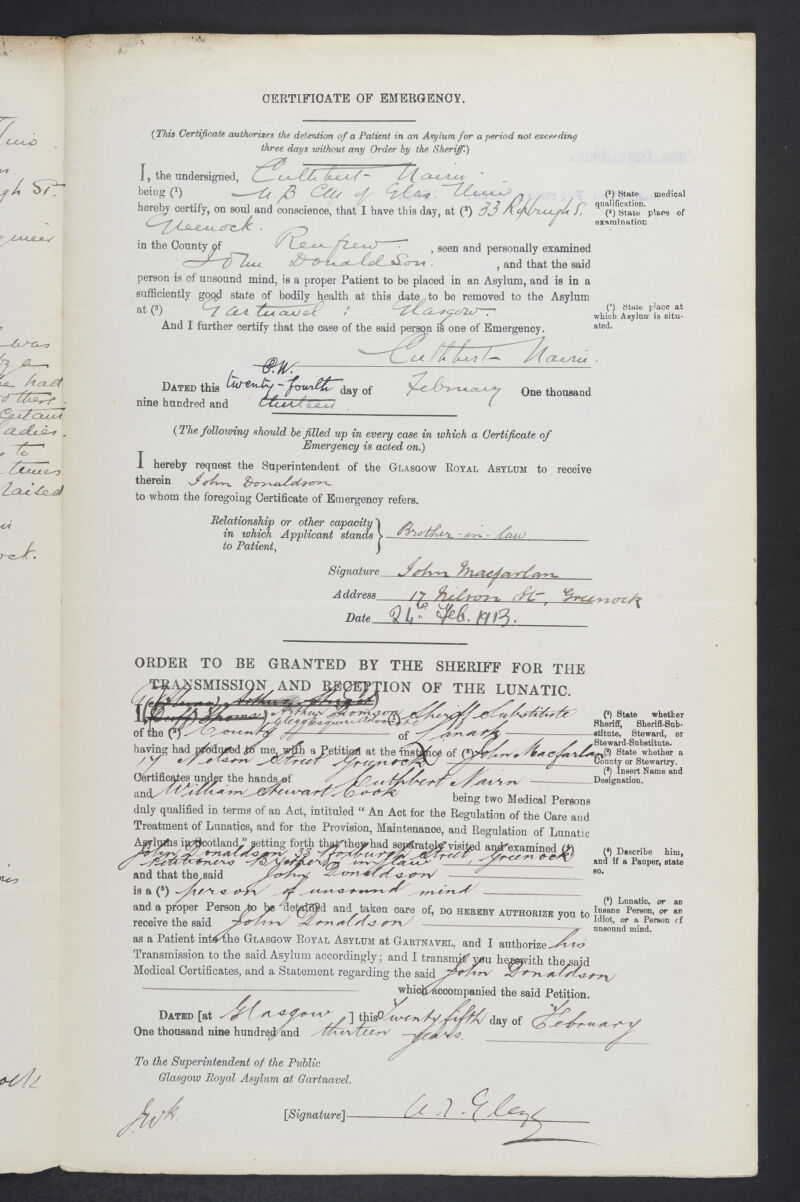 CERTIFICATE OF EMERGENCY.
(This Certificate authorizes the detention of a Patient in an Asylum for a period not exceeding
three days without any Order by the Sheriff.)
I, the undersigned, Cuthbert Nairn
being (¹) M B CM of Glas Univ
hereby certify, on soul and conscience, that I have this day, at (²) 33 Roxburgh S.
Greenock.
in the County of Renfrew. , seen and personally examined
John Donaldson. , and that the said
person is of unsound mind, is a proper Patient to be placed in an Asylum, and is in a
sufficiently good state of bodily health at this date to be removed to the Asylum
at (³) Gartnavel : Glasgow.
And I further certify that the case of the said person is one of Emergency.
Cuthbert Nairn.
C.N.
DATED this twenty-fourth day of February One thousand
nine hundred and thirteen.
(¹) State medical
qualification.
(²) State place of
examination
(³) State place at
which Asylum is situ-
ated.
(The following should be filled up in every case in which a Certificate of
Emergency is acted on.)
I hereby request the Superintendent of the GLASGOW ROYAL ASYLUM to receive
therein John Donaldson
to whom the foregoing Certificate of Emergency refers.
Relationship or other capacity
in which Applicant stands } Brother-in-law
to Patient,
Signature John Macfarlan
Address 17 Nelson St, Greenock
Date 24th Feb. 1913.
ORDER TO BE GRANTED BY THE SHERIFF FOR THE
TRANSMISSION AND RECEPTION OF THE LUNATIC.
I, Arthur Thomson
Glegg Esquire Advocate (¹) Sheriff Substitute
of the (²) County of Lanark
having had produced to me, with a Petition at the instance of (³) John Macfarlan
17 Nelson Street Greenock
Certificates under the hands of Cuthbert Nairn
and William Stewart Cook being two Medical Persons
duly qualified in terms of an Act, intituled " An Act for the Regulation of the Care and
Treatment of Lunatics, and for the Provision, Maintenance, and Regulation of Lunatic
Asylums in Scotland," setting forth that they had separately visited and examined (⁴)
John Donaldson 33 Roxburgh Street Greenock
Petitioners Brother in law
and that the said John Donaldson
is a (⁵) person of unsound mind
and a proper Person to be detained and taken care of, DO HEREBY AUTHORIZE you to
receive the said John Donaldson
as a Patient into the GLASGOW ROYAL ASYLUM at GARTNAVEL, and I authorize his
Transmission to the said Asylum accordingly; and I transmit you herewith the said
Medical Certificates, and a Statement regarding the said John Donaldson
which accompanied the said Petition.
DATED [at Glasgow ] this Twenty fifth day of February
One thousand nine hundred and thirteen years.
(¹) State whether
Sheriff, Sheriff-Sub-
stitute, Steward, or
Steward-Substitute.
(²) State whether a
County or Stewartry.
(³) Insert Name and
Designation.
(⁴) Describe him,
and if a Pauper, state
so.
(⁵) Lunatic, or an
Insane Person, or an
Idiot, or a Person of
unsound mind.
To the Superintendent of the Public
Glasgow Royal Asylum at Gartnavel.
[Signature] A. T. Glegg